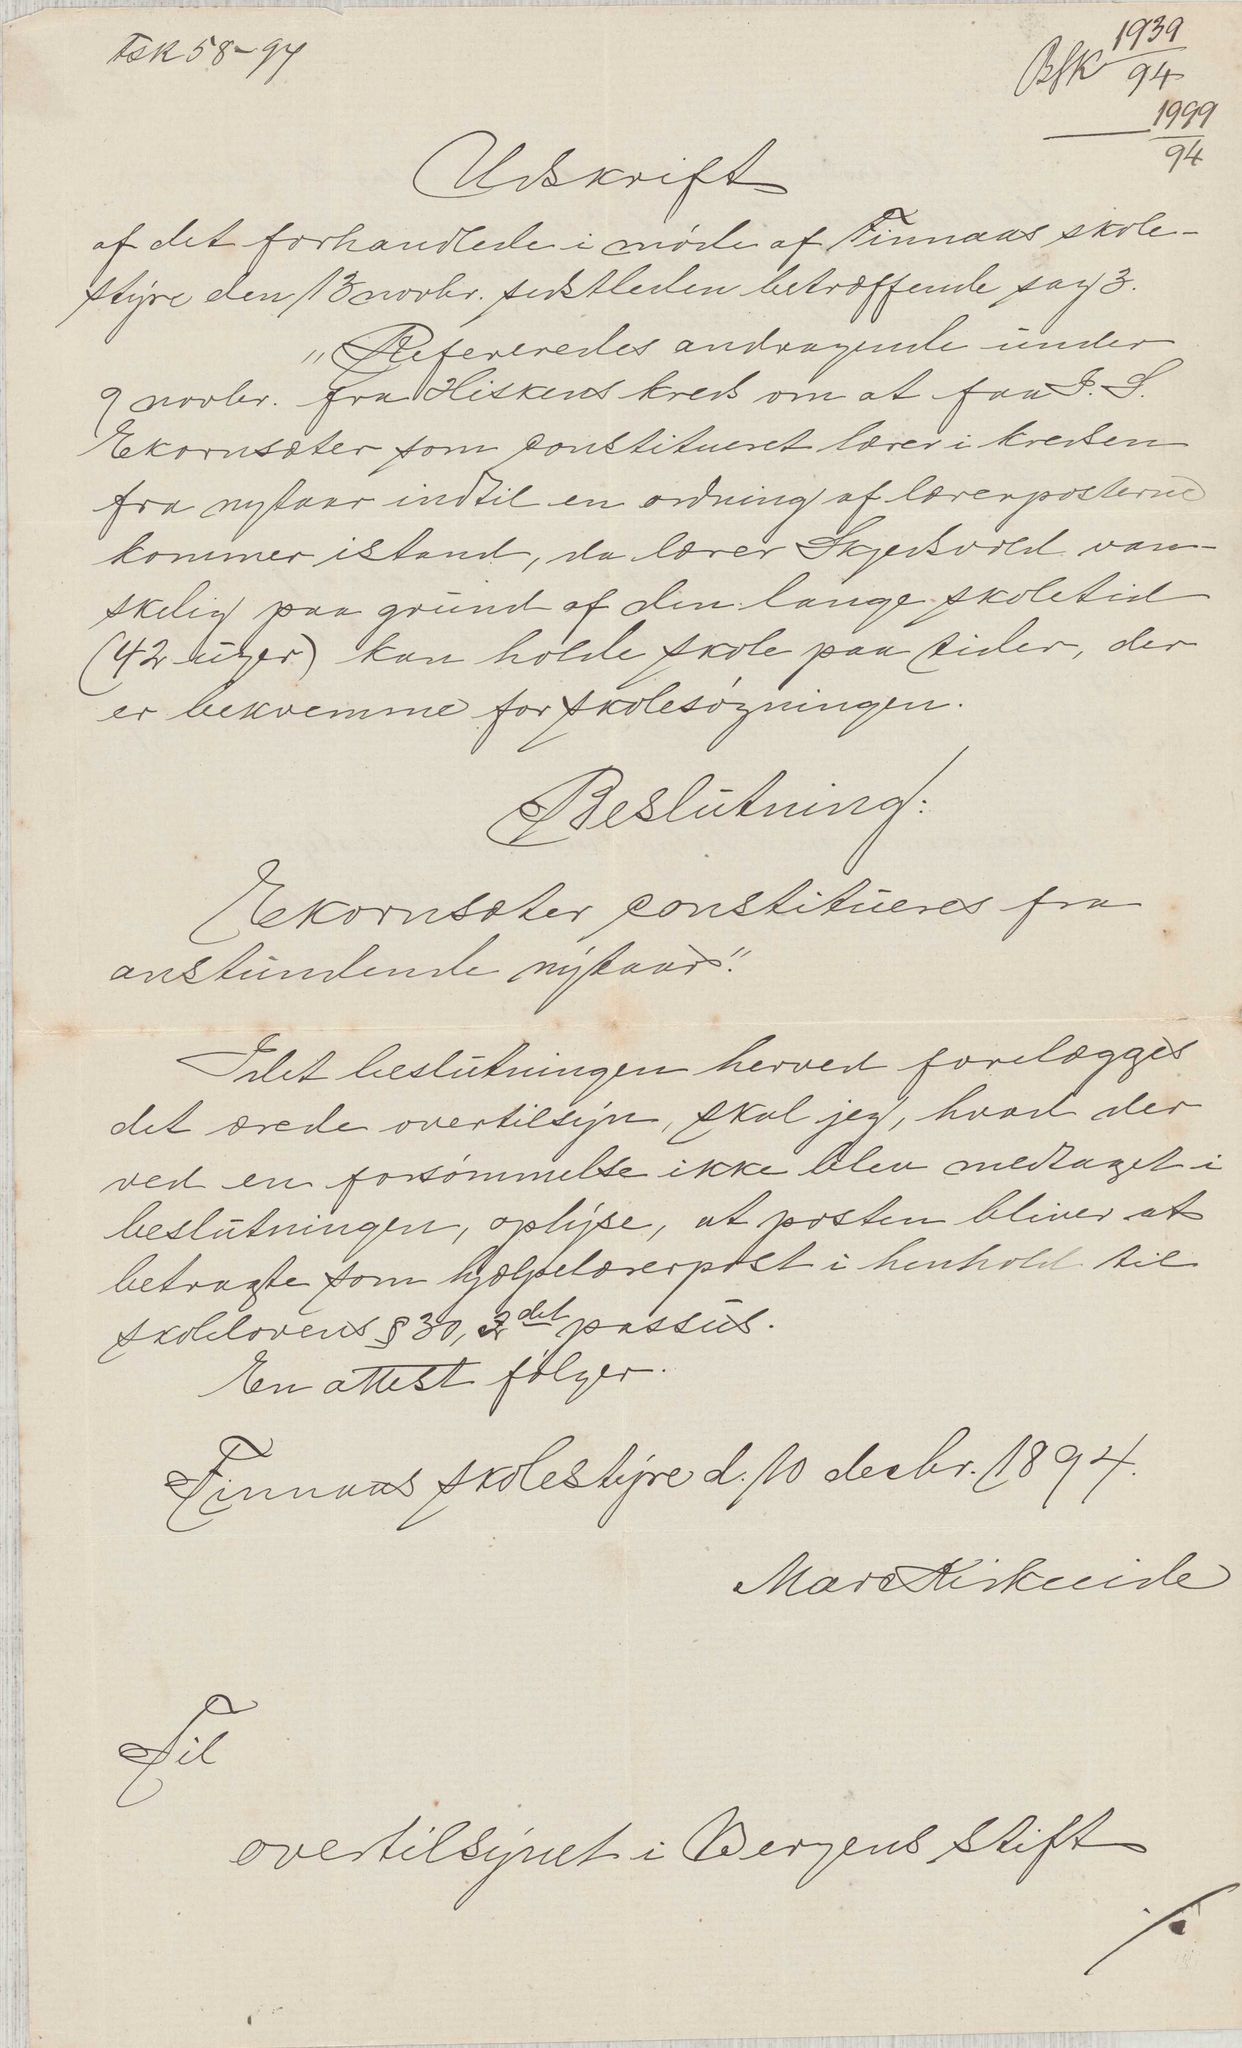 Fsk 58-94
Bsk 1939/94
1999/94
Udskrift
af det forhandlede i møde af Finnaas skole-
styre den 13 novbr. sidstleden betræffende sag 3.
"Refereredes andragende under
9 novbr. fra Hiskens kreds om at faa I. S.
Ekornsæter som constitueret lærer i kredsen
fra nytaar indtil en ordning af lærerposterne
kommer istand, da lærer Skjedsvold van-
skelig paa grund af den lange skoletid
(42 uger) kan holde skole paa tider, der
er bekvemme for skolesøgningen.
Beslutning:
Ekornsæter constitueres fra
anstundende nytaar".
Idet beslutningen herved forelægges
det ærede overtilsyn, skal jeg, hvad der
ved en forsømmelse ikke blev medtaget i
beslutningen, oplyse, at posten bliver at
betragte som hjælpelærerpost i henhold til
skolelovens § 30, 2det passus.
En attest følger.
Finnaas skolestyre d. 10 decbr. 1894.
Mar. Kirkeeide
Til
overtilsynet i Bergens stift